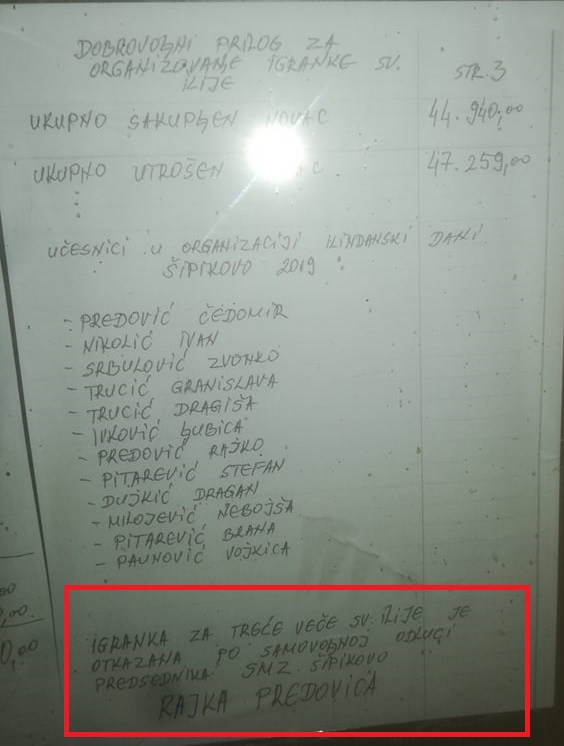 DOBROVOЉNI PRILOG ZA
ORGANIZOVAЊE IGRANKE SV.
ILIJE
STR.3
UKUPNO SAKUPЉEN NOVAC 44.940,00
UKUPNO UTROŠEN 47.259,00
UČESNICI U ORGANIZACIJI ILINDANSKI DANI
ŠIPIKOVO 2019 :
- PREDOVIĆ ČEDOMIR
- NIKOLIĆ IVAN
- SRBULOVIĆ ZVONKO
- TRUCIĆ GRANISLAVA
- TRUCIĆ DRAGIŠA
- IVKOVIĆ ЉUBICA
- PREDOVIĆ RAJKO
- PITAREVIĆ STEFAN
- DUJKIĆ DRAGAN
- MILOJEVIĆ NEBOJŠA
- PITAREVIĆ BRANA
- PAUNOVIĆ VOJKICA
IGRANKA ZA TREĆE VEČE SV. ILIJE JE
OTKAZANA PO SAMOVOЉNOJ ODLUCI
PREDSEDNIKA SMZ. ŠIPIKOVO
RAJKA PREDOVIĆA